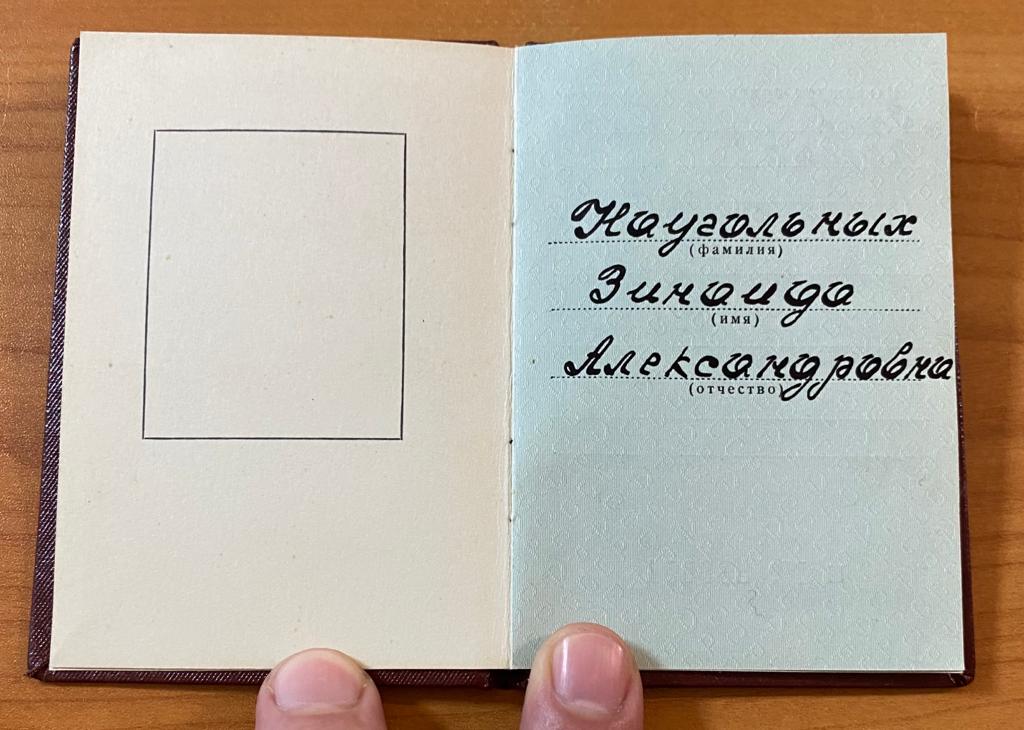 Наугольных
(фамилия)
Зинаида
(имя)
Александровна
(отчество)